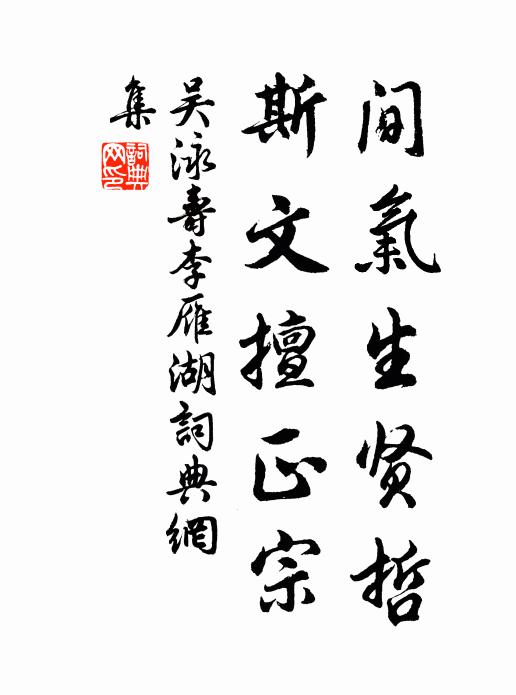 间氣生贤哲
斯文擅正宗
吴泳壽李雁湖詞典網
集
詞典網印